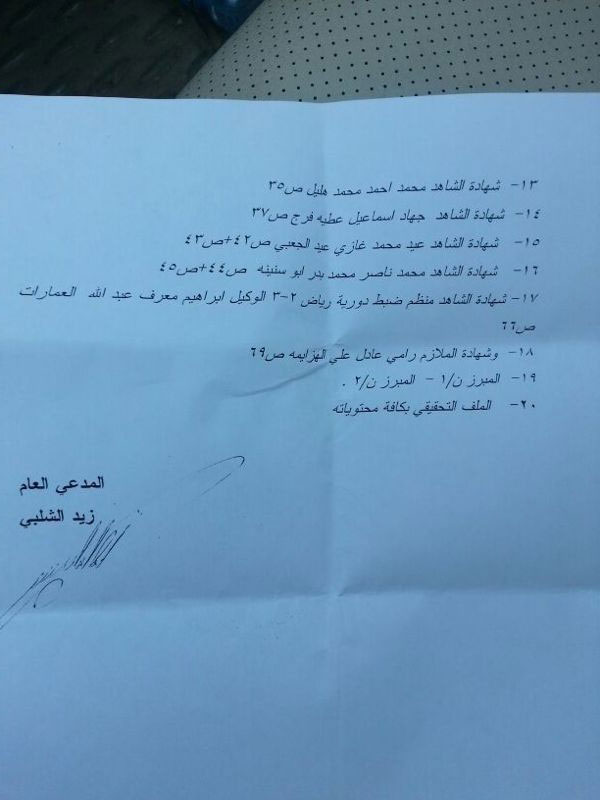 ١٣- شهادة الشاهد محمد احمد محمد هليل ص٣٥
١٤- شهادة الشاهد جهاد اسماعيل عطيه فرج ص٣٧
١٥- شهادة الشاهد عيد محمد غازي عيد الجعبي ص٤٢+ص٤٣
١٦- شهادة الشاهد محمد ناصر محمد بدر ابو سنينه ص٤٤+ص٤٥
١٧- شهادة الشاهد منظم ضبط دورية رياض ٢-٣ الوكيل ابراهيم معرف عبد الله العمارات
ص٦٦
١٨- وشهادة الملازم رامي عادل علي الهزايمه ص٦٩
١٩- المبرز ن/١ - المبرز ن/٢ .
٢٠- الملف التحقيقي بكافة محتوياته
المدعي العام
زيد الشلبي